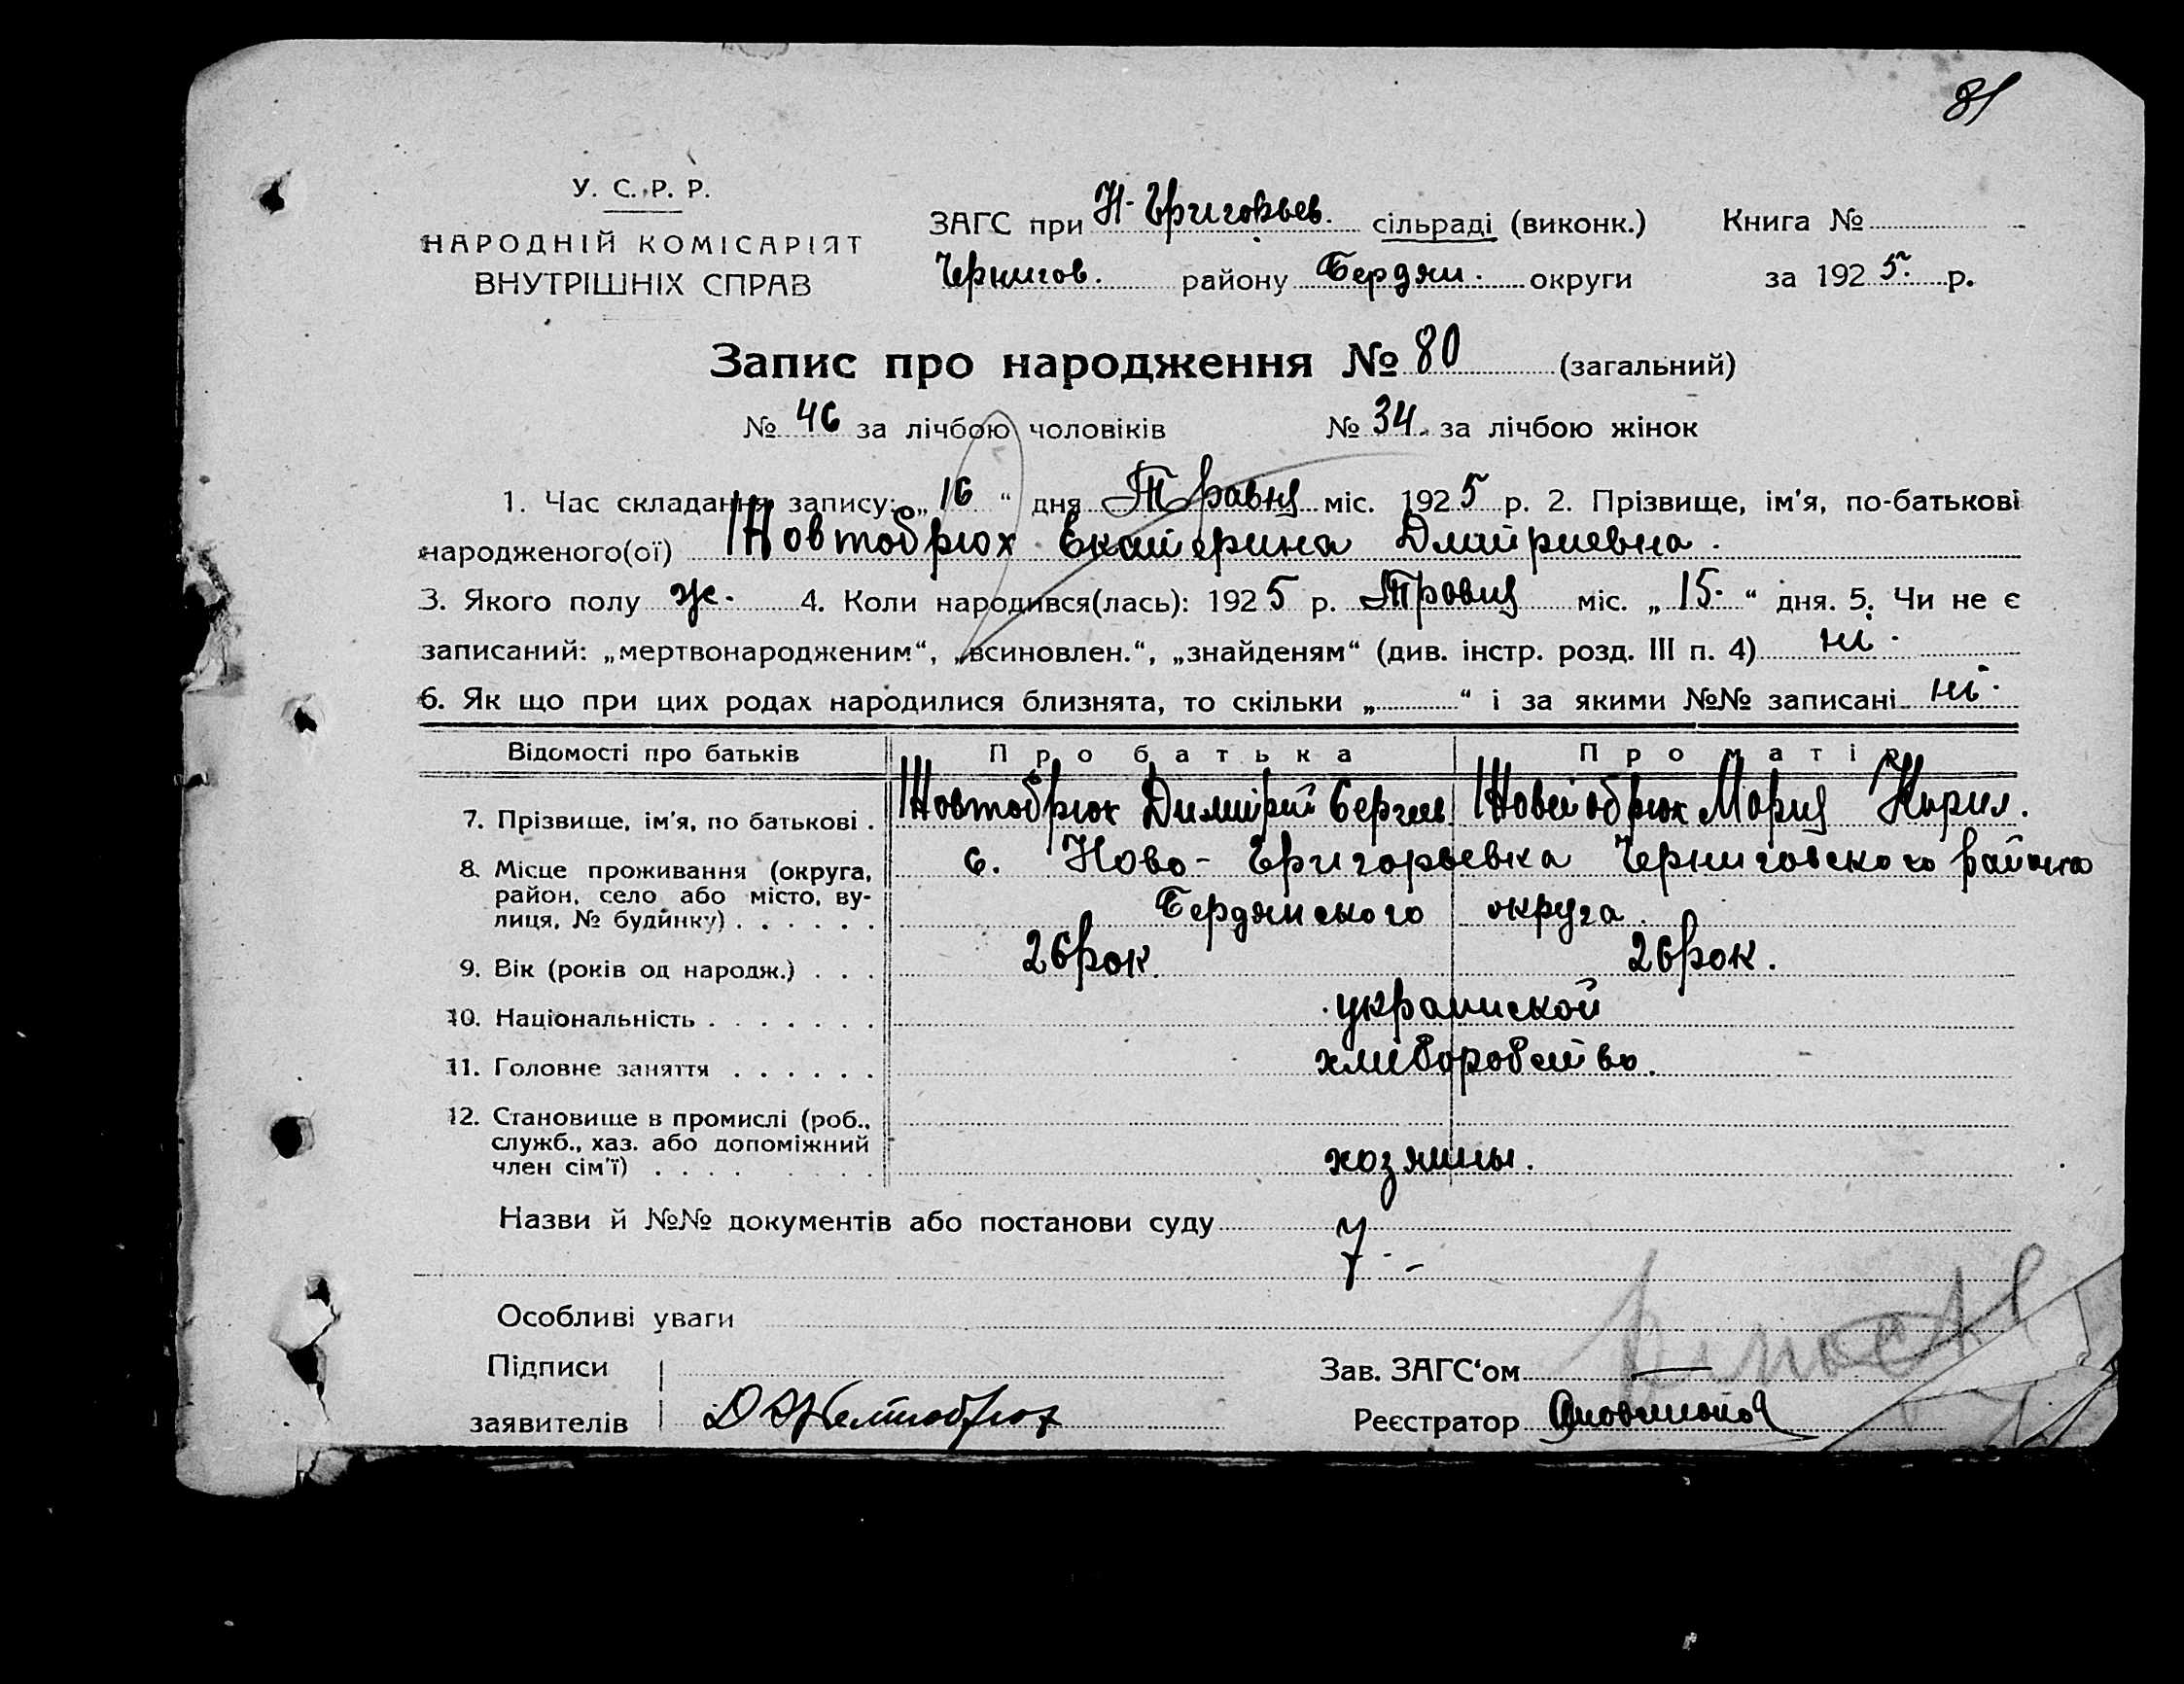 81
У. С. Р. Р.
НАРОДНІЙ КОМІСАРІЯТ
ВНУТРІШНІХ СПРАВ
ЗАГС при Н-Григорьев. сільраді (виконк.) Книга №
Чернигов. району Бердян. округи за 1925 р.
Запис про народження № 80 (загальний)
№ 46 за лічбою чоловіків № 34. за лічбою жінок
1. Час складання запису: „16“ дня Травня міс. 1925 р. 2. Прізвище, ім'я, по-батькові
народженого(ої) Жовтобрюх Екатерина Дмитриевна.
3. Якого полу ж. 4. Коли народився(лась): 1925 р. Травня міс. „15.“ дня. 5. Чи не є
записаний: „мертвонародженим“, „всиновлен.“, „знайденям“ (див. інстр. розд. III п. 4) ні.
6. Як що при цих родах народилися близнята, то скільки „ “ і за якими №№ записані ні.
Відомості про батьків Про батька Про матір
7. Прізвище, ім'я, по батькові . Жовтобрюх Димитрий Сергеев Жовтобрюх Мария Кирил.
8. Місце проживання (округа, с. Ново-Григорьевка Черниговского района
район, село або місто, ву-
лиця, № будинку) . . . . . . Бердянского округа.
9. Вік (років од народж.) . . . 26 рок. 26 рок.
10. Національність . . . . . . . украинской
11. Головне заняття . . . . . . хлиборобство.
12. Становище в промислі (роб.,
служб., хаз. або допоміжний
член сім'ї) . . . . . . . . . хозяины.
Назви й №№ документів або постанови суду
Особливі уваги
Підписи Зав. ЗАГС‘ом —
заявителів Д Жовтобрюх Реєстратор